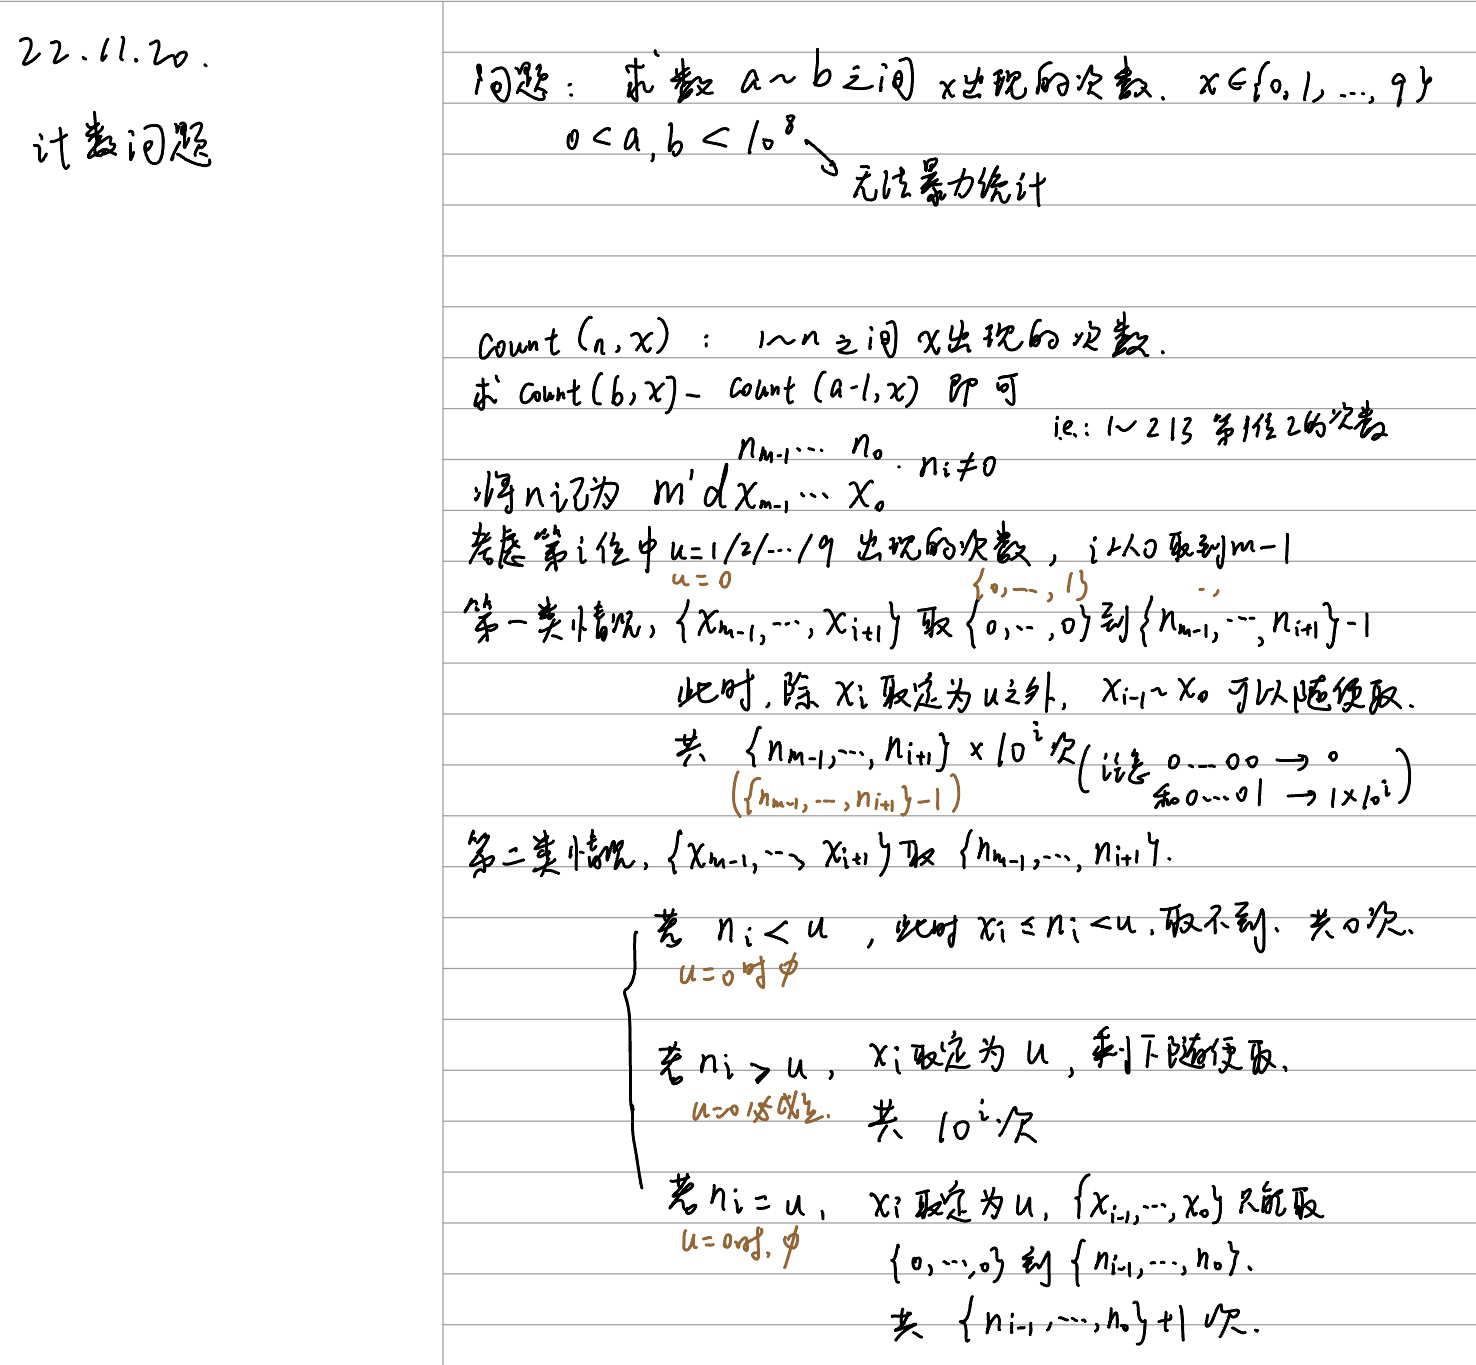 22.11.20.
计数问题
问题： 求数 a~b 之间 x出现的次数. x∈{0,1,…,9}
0<a,b<10⁸
无法暴力统计
count(n,x)： 1~n之间x出现的次数.
求 count(b,x) - count(a-1,x) 即可
i.e.: 1~213 第1位2的次数
n_{m-1}… n_0 . n_i≠0
将n记为 m'd x_{m-1}… x_0
考虑第i位中u=1/2/…/9 出现的次数，i从0取到m-1
u=0
{0,…,1}
第一类情况，{x_{m-1},…,x_{i+1}} 取 {0,…,0}到{n_{m-1},…,n_{i+1}}-1
此时，除x_i取定为u之外，x_{i-1}~x_0 可以随便取.
共 {n_{m-1},…,n_{i+1}}×10^i次(注意 0…00→0
({n_{m-1},…,n_{i+1}}-1)
和0…01→1×10^i)
第二类情况，{x_{m-1},…,x_{i+1}}取 {n_{m-1},…,n_{i+1}}.
若 n_i<u ，此时 x_i≤n_i<u，取不到. 共0次.
u=0时 ϕ
若 n_i>u， x_i取定为u，剩下随便取.
u=0
共 10^i次
若n_i=u， x_i取定为u，{x_{i-1},…,x_0}只能取
u=0时，ϕ
{0,…,0}到{n_{i-1},…,n_0}.
共 {n_{i-1},…,n_0}+1次.